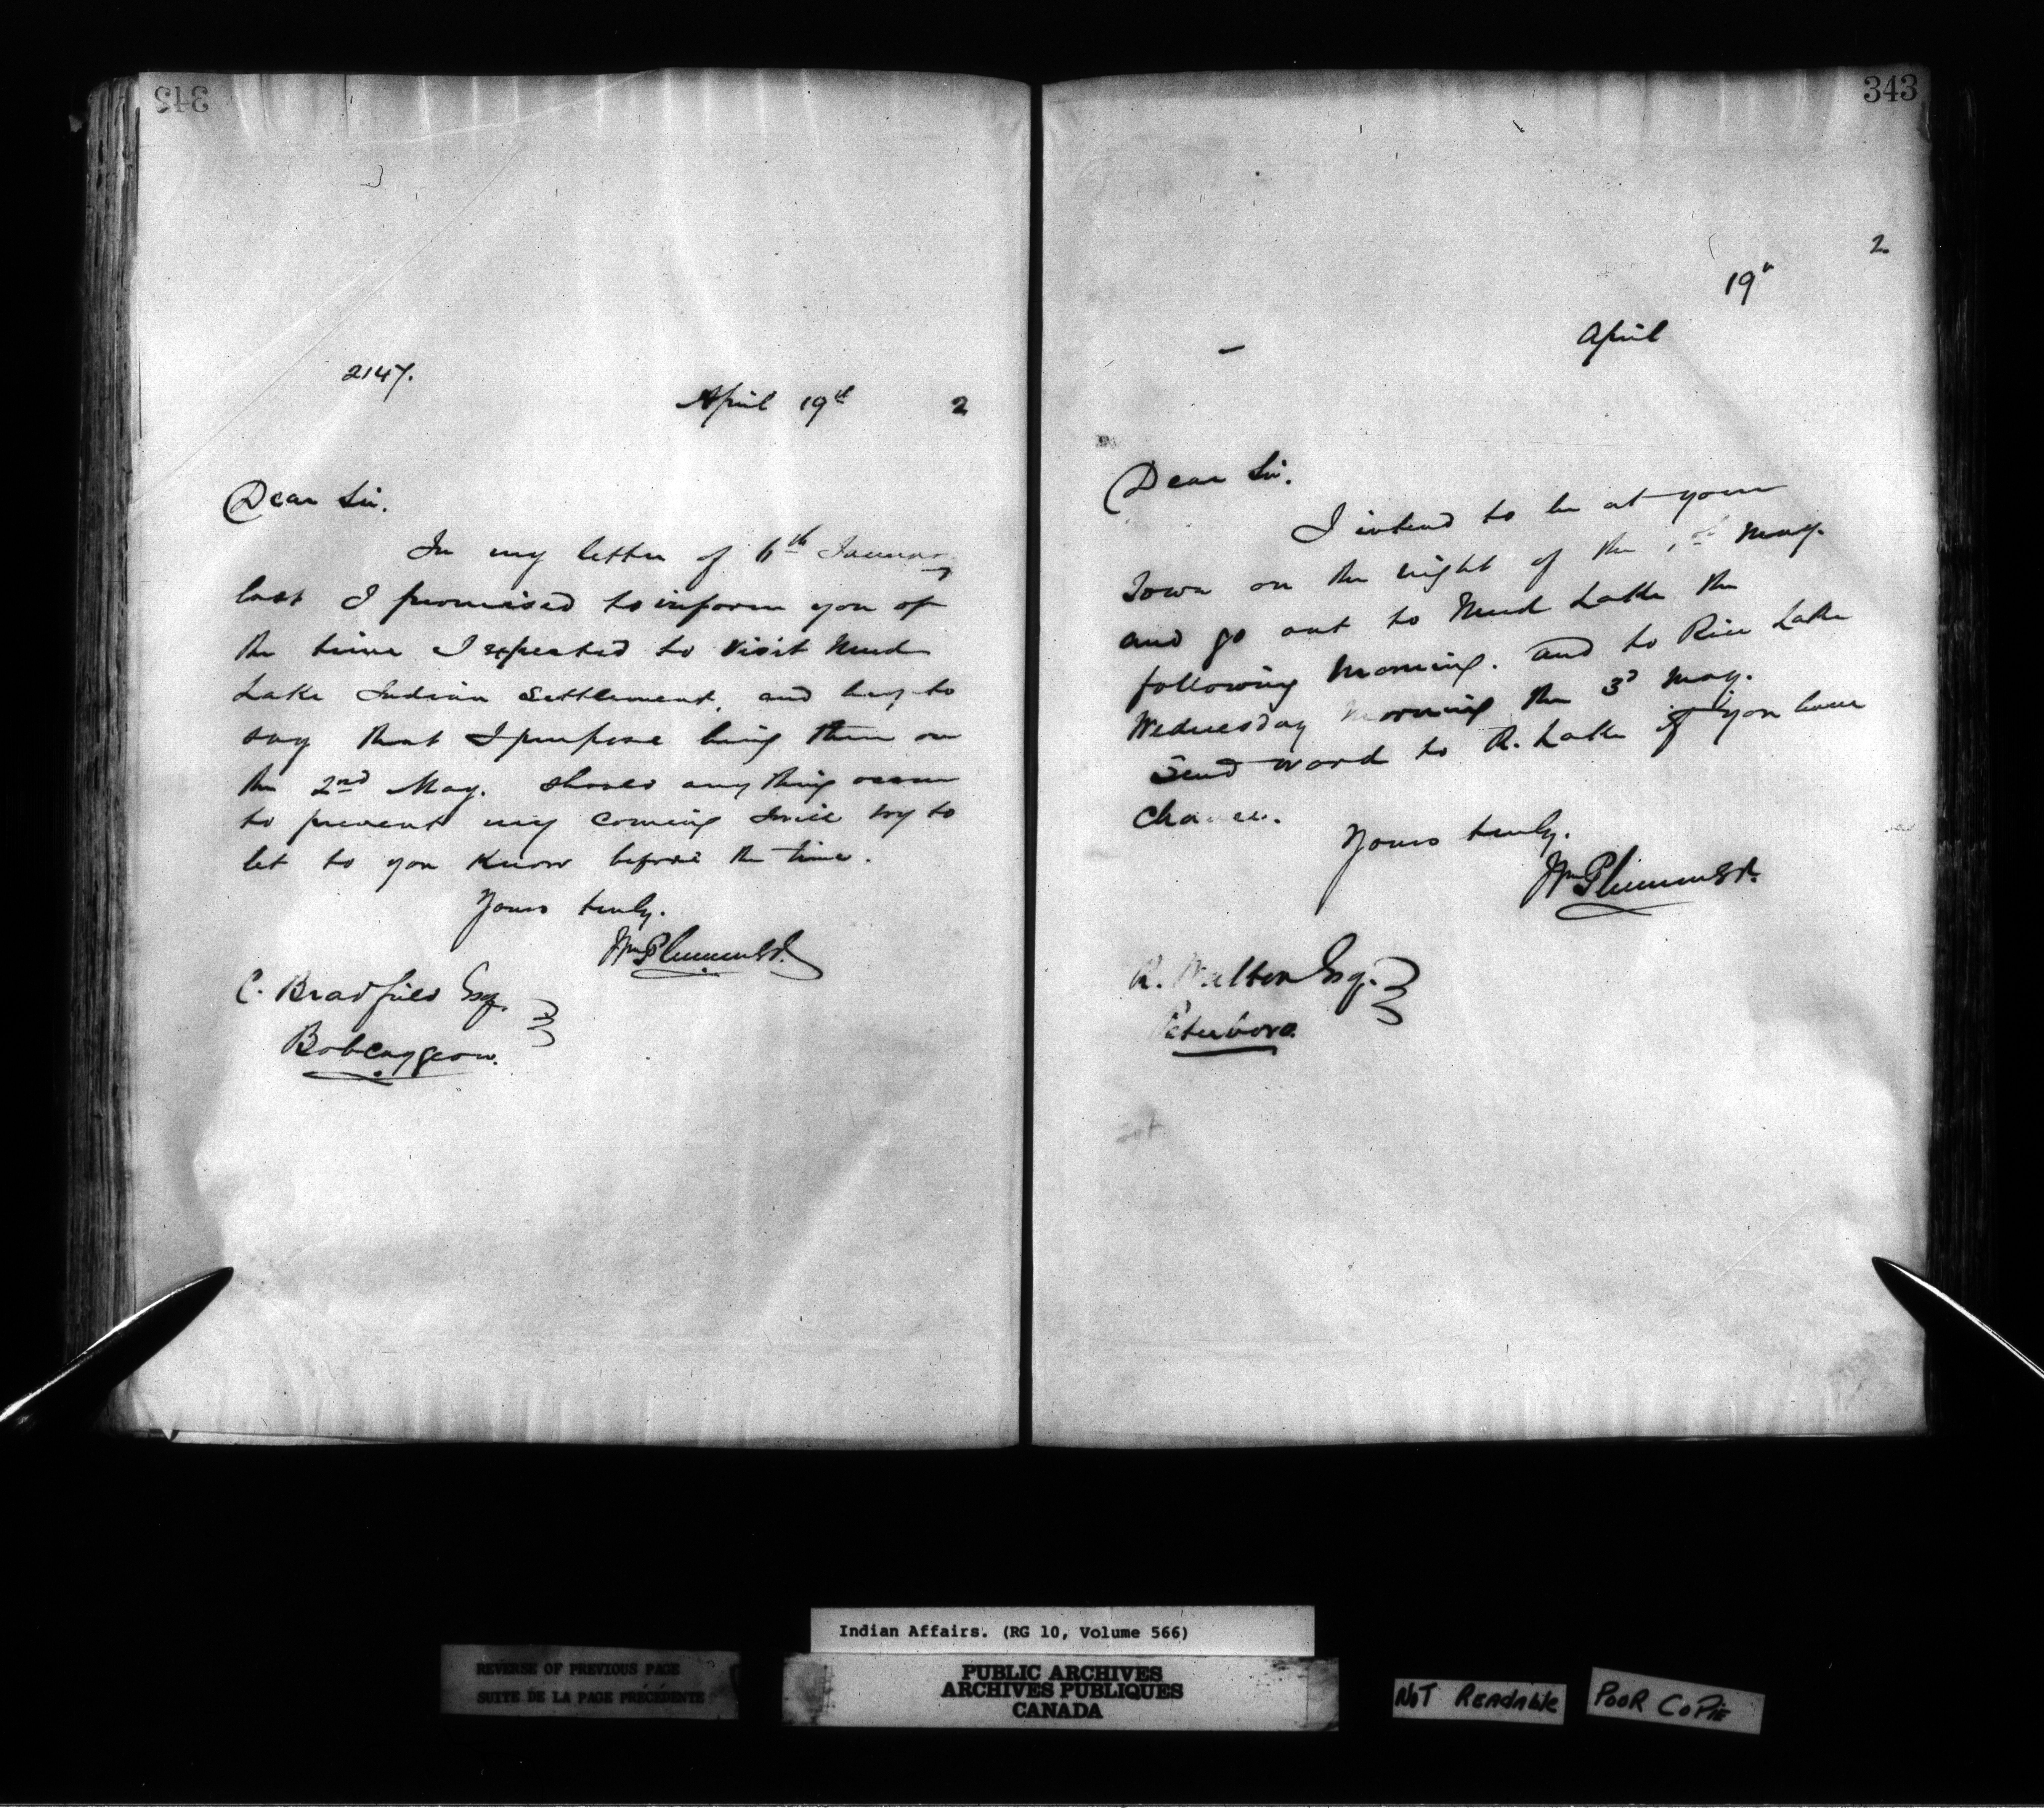 342
2147.
April 19th 2
Dear Sir.
In my letter of 6th January
last I promised to inform you of
the time I expected to visit Mud
Lake Indian Settlement, and beg to
say that I purpose being there on
the 2nd May. Should any thing occur
to prevent my coming I will try to
let to you know before the time.
Yours truly.
Wm Plummer
C. Bradfield Esq.
Bobcaygeon.
343
2
19th
April
Dear Sir.
I intend to be at your
Town on the night of the 1st May.
and go out to Mud Lake the
following morning. and to Rice Lake
Wednesday morning the 3d May.
Send word to R. Lake if you have
chance.
Yours truly.
Wm Plummer
R. Walton Esq.
Peterboro.
Indian Affairs. (RG 10, Volume 566)
REVERSE OF PREVIOUS PAGE
SUITE DE LA PAGE PRÉCÉDENTE
PUBLIC ARCHIVES
ARCHIVES PUBLIQUES
CANADA
NOT READABLE
POOR COPIE